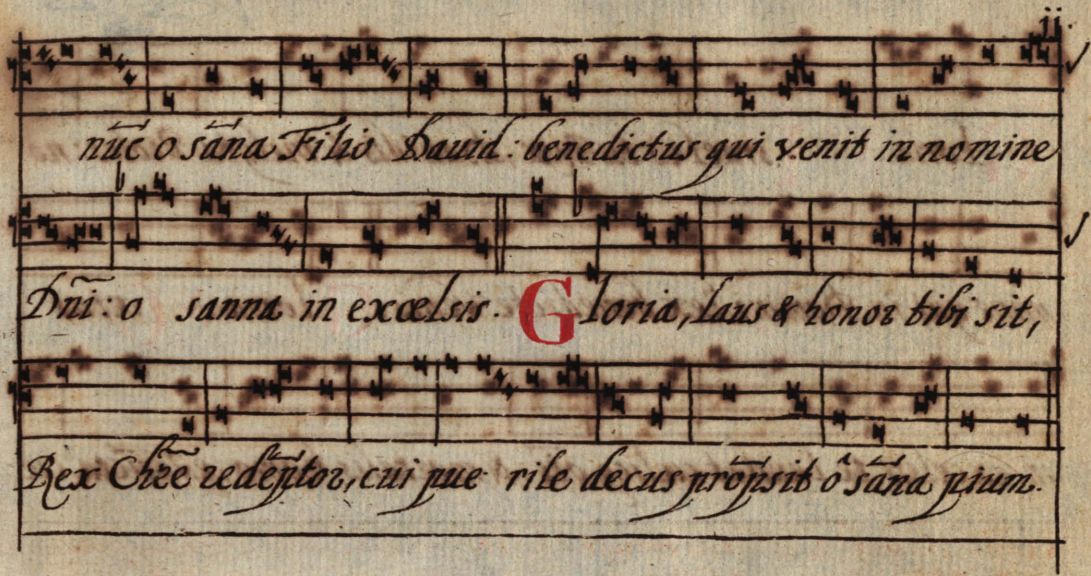 ii.
nũc o sãna Filio Dauid: benedictus qui venit in nomine
Dñi: o sanna in excœlsis. Gloria, laus & honor tibi sit,
Rex Chr̃e redẽptor, cui pue rile decus prõpsit ô sãna pium.